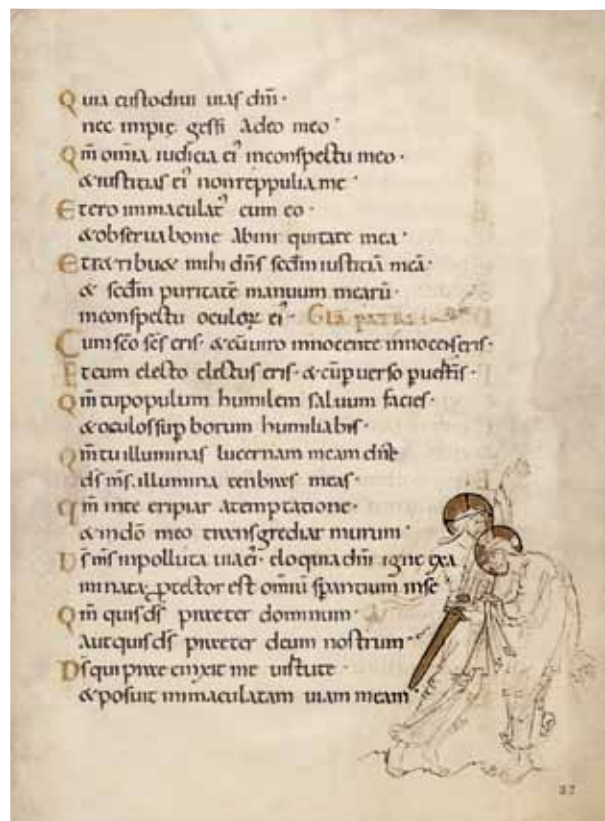 Quia custodiui uias dñi·
nec impię gessi Adeo meo
Qm̄ omia iudicia ei' inconspectu meo·
& iustitias ei' non reppulia me
Etero immaculat' cum eo·
& obseruabo me Abini quitate mea·
Etretribu& mihi dñs secdm iustitiā meā·
& secdm puritatē manuum mearū·
inconspectu oculoꝝ ei'· Glā patri
Cum sc̄o sc̄s eris· & cū uiro innocente innocens eris·
Et cum electo electus eris· & cū puerso
Qm̄ tu populum humilem saluum facies·
& oculos sup borum humiliabis·
Qm̄ tu illuminas lucernam meam dñe
ds̄ ms̄ illumina tenbras meas·
qm̄ inte eripiar Atemptatione·
& indō meo transgrediar murum
Ds̄ ms̄ inpolluta uia ei'· eloquia dñi igne exa
minata ꝓtector est omniū sperantium inse
Qm̄ quis ds̄ preter dominum·
Aut quis ds̄ preter deum nostrum
Ds̄ qui precinxit me uirtute·
& posuit immaculatam uiam meam
37